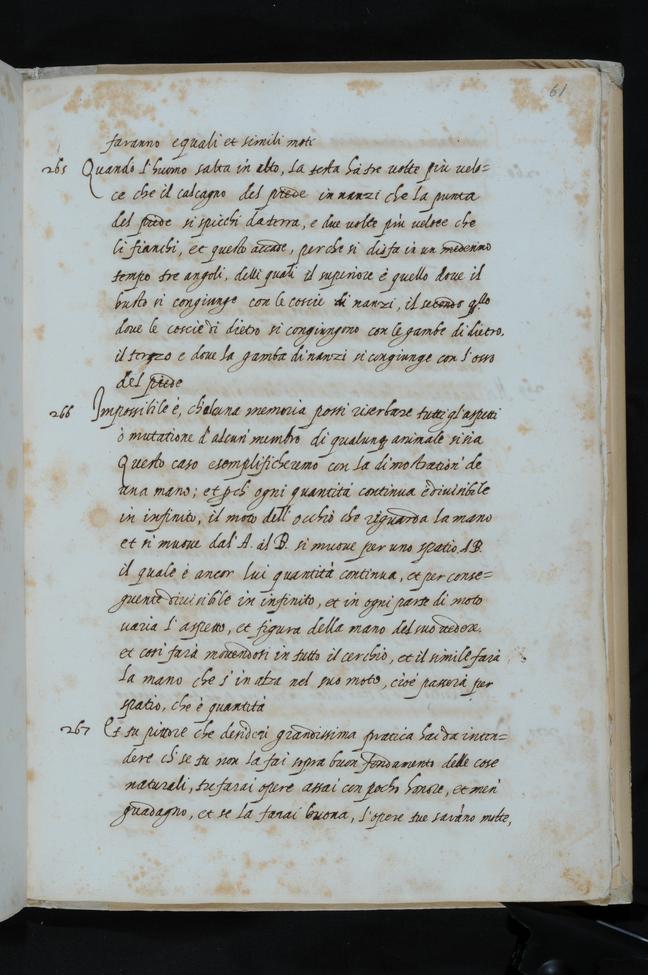 61
faranno equali et simili moti
265 Quando l'huomo salta in alto, la testa hà tre volte più velo=
ce che il calcagno del piede in nanzi che la punta
del piede si spicchi da terra, e due volte più veloce che
li fianchi, et questo accade, perche si disfa in un medemo
tempo tre angoli, delli quali il superiore è quello dove il
busto si congiunge con le coscie di nanzi, il secondo q.llo
dove le coscie di dietro si congiungono con le gambe di dietro,
il terzo e dove la gamba dinanzi si congiunge con l'osso
del piede
266 Impossibile è, ch'alcuna memoria possi riserbare tutti gl'aspetti
ò mutatione d'alcun membro di qualunq animale si sia
Questo caso esemplificheremo con la dimostration' de
una mano; et pch' ogni quantità continua è divisibile
in infinito, il moto dell'occhio che riguarda la mano
et si muove dal' A. al B. si muove per uno spatio AB.
il quale è ancor lui quantità continua, et per conse=
guente divisibile in infinito, et in ogni parte di moto
varia l'aspetto, et figura della mano del suo vedere.
et così farà movendosi in tutto il cerchio, et il simile farà
la mano che s'inalza nel suo moto, cioè passerà per
spatio, che è quantità
267 Et tu pittore che desideri grandissima pratica hai da inten=
dere ch' se tu non la fai sopra buon fondamento delle cose
naturali, tu farai opere assai con pocho honore, et men'
guadagno, et se la farai buona, l'opere tue saràno molte,